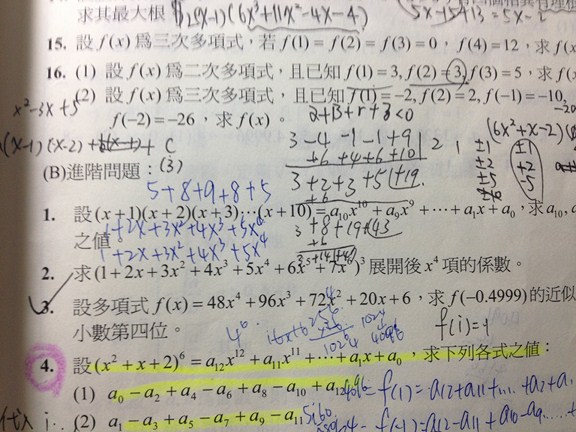 求其最大根
(6x³+11x²-4x-4)
5x-15+13=5x-2
15. 設 f(x) 爲三次多項式，若 f(1) = f(2) = f(3) = 0，f(4) = 12，求 f(x
16. (1) 設 f(x) 爲二次多項式，且已知 f(1) = 3, f(2) = 3, f(3) = 5，求 f(x
x²-3x+5
(2) 設 f(x) 爲三次多項式，且已知 f(1) = -2, f(2), f(-1) = -10,
f(-2) = -26，求 f(x)。
(x-1)(x-2)
+ C
3-4-1-1+9
2
+6+4+6+10
3+2+3+5+19
±1
±2
±5
±10
(6x²+x-2)
(B)進階問題：(3)
5+8+9+8+5
1. 設 (x+1)(x+2)(x+3)⋯(x+10) = a₁₀x¹⁰ + a₉x⁹ + ⋯ + a₁x + a₀，求 a₁₀,
1+2x+3x²+4x³+5x⁴
3+8+19+43
之値
1+2x+3x²+4x³+5x⁴
2. 求 (1+2x+3x²+4x³+5x⁴+6x⁵+7x⁶)³ 展開後 x⁴ 項的係數。
3. 設多項式 f(x) = 48x⁴ + 96x³ + 72x² + 20x + 6，求 f(-0.4999) 的近似
小數第四位。
4⁶
256
1024
1024
4096
f(i)=1
4. 設 (x² + x + 2)⁶ = a₁₂x¹² + a₁₁x¹¹ + ⋯ + a₁x + a₀，求下列各式之値：
(1) a₀ - a₂ + a₄ - a₆ + a₈ - a₁₀ + a₁₂
4096
f(1)=a12+a11+...+a2+a1
代入 i
(2) a₁ - a₃ + a₅ - a₇ + a₉ - a₁₁
f(-1)=a12-a11+a10-a9